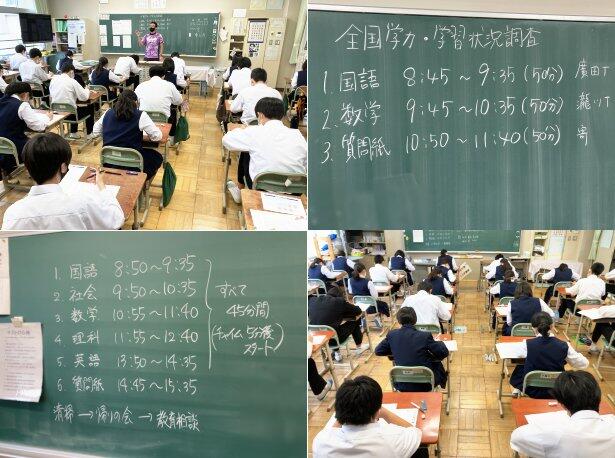 全国学力・学習状況調査
1. 国語 8:45～9:35(50分) 廣田T
2. 数学 9:45～10:35(50分) 瀧川T
3. 質問紙 10:50～11:40(50分)
1. 国語 8:50～9:35
2. 社会 9:50～10:35
3. 数学 10:55～11:40
4. 理科 11:55～12:40
5. 英語 13:50～14:35
6. 質問紙 14:45～15:35
すべて
45分間
(チャイム5分後
スタート)
清掃→帰りの会→教育相談